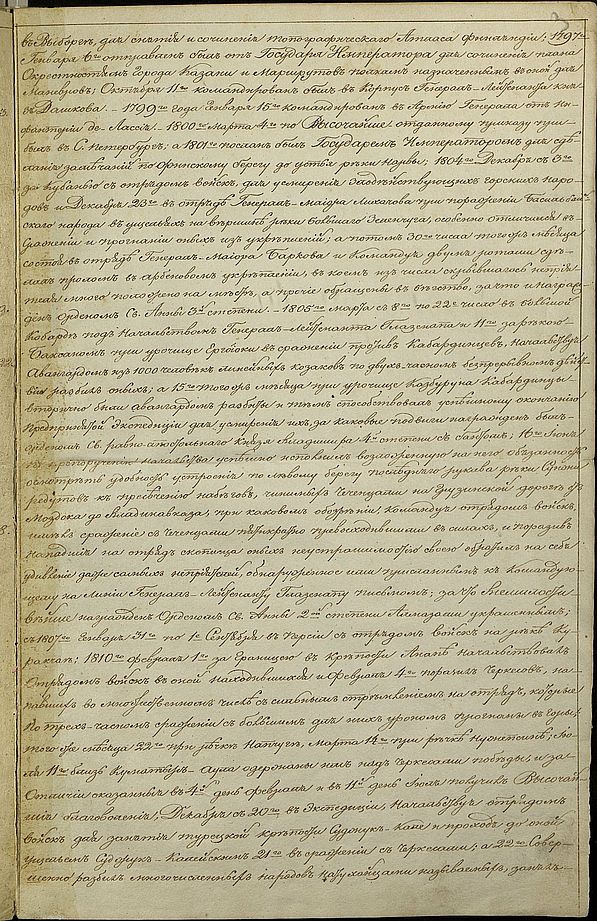 въ Выборгъ, для снятія и сочиненія топографическаго Атласа Финляндіи; 1797го
Генваря 6го отправленъ былъ отъ Государя Императора для сочиненія плана
Окрестностямъ Города Казани и Маршрутовъ полкамъ назначеннымъ въ оной для
Маневровъ; Октября 11го командированъ былъ въ Корпусъ Генералъ-Лейтенанта князя
Дашкова. – 1799го года Генваря 18го командированъ въ Армію Генерала отъ Ин-
фантеріи де-Лассія. – 1800го Марта 4го по Высочайше отданному приказу при-
былъ въ С. Петербургъ, а 1801го посланъ былъ Государемъ Императоромъ для сдѣ-
ланія замѣчаній по Финскому берегу до устья рѣки Наровы; 1804го Декабря съ 3го
за Кубанью съ отрядомъ войскъ, для усмиренія злодѣйствующихъ горскихъ наро-
довъ и Декабря 23го въ отрядѣ Генералъ-Маіора Лихачова при пораженіи
народа въ ущельяхъ на вершинѣ рѣки большаго Зеленчуга, особенно отличился въ
Сраженіи и прогнаніи оныхъ изъ укрѣпленій; а потомъ 30го числа того жъ мѣсяца
состоя въ отрядѣ Генералъ-Маіора Баркова и Командуя двумя ротами сдѣ-
лалъ проломъ въ укрѣпленіи, въ коемъ изъ числа скрывшагося непрія-
теля много положено на мѣстѣ, а прочіе обращены въ бѣгство, за что и награж-
денъ орденомъ Св. Анны 3й степени. – 1805го Марта съ 8го по 22е число въ большой
Кабардѣ подъ Начальствомъ Генералъ-Лейтенанта Глазенапа и 11го за рѣкою
Баксаномъ при урочищѣ въ сраженіи противъ Кабардинцевъ, Начальствуя
Авангардомъ изъ 1000 человѣкъ линейныхъ козаковъ по двухъ-часномъ безпрерывномъ дѣйст-
віи разбилъ оныхъ; а 15го того жъ мѣсяца при урочищѣ Кабардинцы
вторично были авангардомъ разбиты и тѣмъ способствовалъ успѣшному окончанію
предпринятой Экспедиціи для усмиренія ихъ, за каковые подвиги награжденъ былъ
орденомъ Св. равно-апостольнаго Князя Владимира 4й степени съ бантомъ; 16го Іюня
по препорученію начальства успѣшно исполнилъ возложенную на него обязанность
осмотрѣть удобность устроенія по лѣвому берегу рукава рѣки
редутовъ къ пресѣченію набѣговъ, чинимыхъ Чеченцами на Грузинской дорогѣ отъ
Моздока до Владикавказа, при каковомъ обозрѣніи командуя отрядомъ войскъ,
имѣлъ сраженіе съ Чеченцами превосходнѣйшими въ силахъ, и поразивъ
нападшія на отрядъ скопища оныхъ неустрашимостію своею обратилъ на себя
удивленіе даже самыхъ непріятелей, обнаруженное ими присланнымъ къ Командую-
щему на Линіи Генералъ-Лейтенанту Глазенапу письмомъ; за что Всемилости-
вѣйше награжденъ Орденомъ Св. Анны 2й степени Алмазами украшеннымъ;
съ 1807го Генваря 31го по 1е Сентября въ Персіи съ отрядомъ войскъ на рѣкѣ
1810го Февраля 1го за Границею въ крѣпости Анапѣ Начальствовалъ
Отрядомъ войскъ въ оной находившихся и Февраля 4го поразилъ Черкесовъ, на-
павшихъ во множественномъ числѣ съ сильнымъ стремленіемъ на отрядъ, которые
по трехъ-часномъ сраженіи съ большимъ для нихъ урономъ прогнаны въ горы;
того же мѣсяца 22го при рѣчкѣ Марта 14го при рѣчкѣ Ію-
ля 11го близь Аула одержаны имъ надъ Черкесами побѣды, и за
Отличіи оказанныя въ 4й день февраля и въ 11й день Іюля получилъ Высочай-
шія благоволенія; Декабря съ 20го въ Экспедиціи, Начальствуя отрядомъ
войскъ для занятія турецкой крѣпости Суджукъ-Кале и проходя до оной
ущельемъ Суджукъ-Калейскимъ 21го въ сраженіи съ Черкесами; а 22го Совер-
шенно разбилъ многочисленныхъ народовъ Натухайцами называемыхъ,